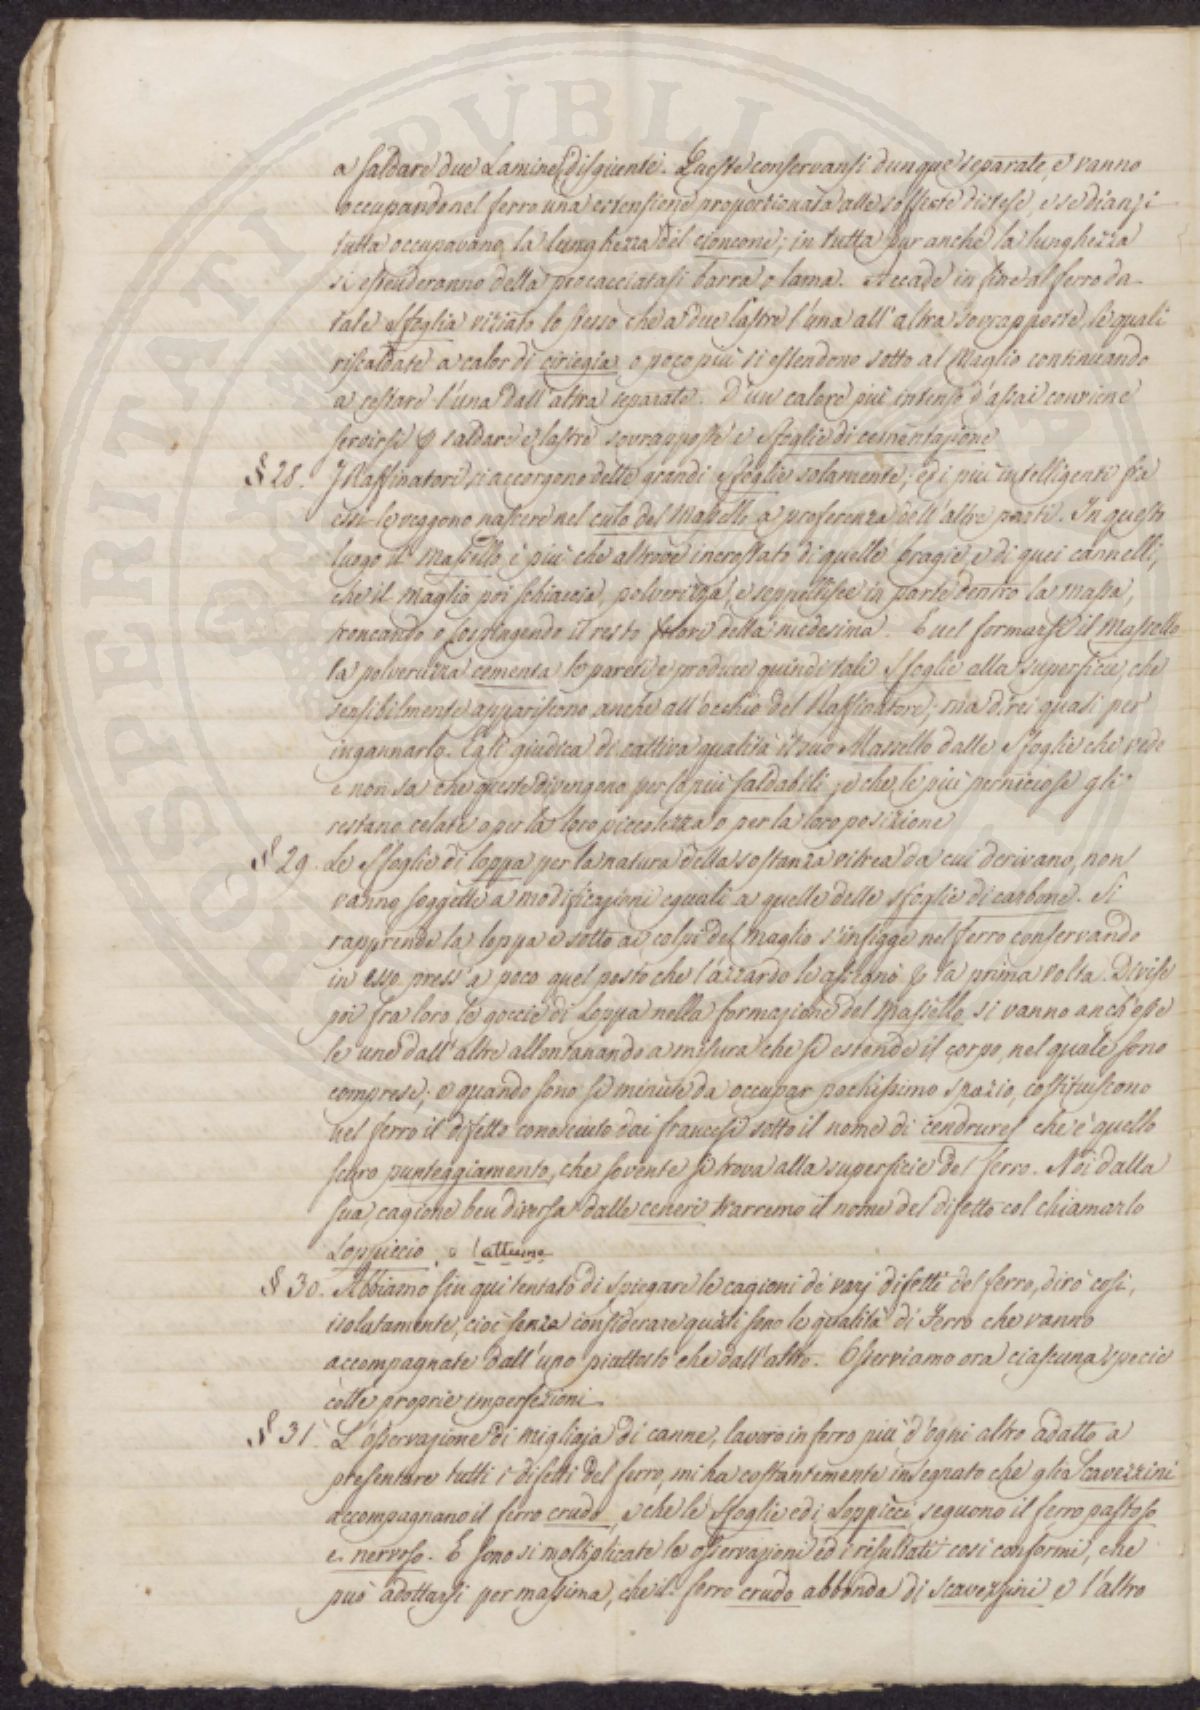 a saldare due Lamine disgiunte. Queste conservansi dunque separate, e vanno
occupando nel ferro una estensione proporzionata alle sofferte distese, e se dianzi
tutta occupavano la lunghezza del cioncone; in tutta pur anche la lunghezza
si estenderanno della procacciatasi barra o lama. Accade in fine al ferro da
tale Sfoglia viziato lo stesso che a due lastre l'una all'altra sovrapposte, le quali
riscaldate a calor di ciriegia o poco più si estendono sotto al Maglio continuando
a restare l'una dall'altra separate. D'un calore più intenso d'assai conviene
servirsi p saldare e lastre sovrapposte e sfoglie di cementazione
§ 28. I Raffinatori si accorgono delle grandi sfoglie solamente; ed i più intelligenti fra
essi le veggono nascere nel culo del Massello a preferenza dell'altre parti. In questo
luogo il Massello è più che altrove incrostato di quelle bragie, e di quei cannelli,
che il maglio poi schiaccia, polverizza, e seppellisce in parte dentro la massa,
troncando o respingendo il resto fuori della medesima. E nel formarsi il Massello
la polveruzza cementa le pareti e produce quindi tali Sfoglie alla superficie che
sensibilmente appariscono anche all'occhio del Raffinatore; ma direi quasi per
ingannarlo. Egli giudica di cattiva qualità il suo Massello dalle Sfoglie che vede
e non sa che queste divengono per lo più saldabili, e che le più perniciose gli
restano celate o per la loro piccolezza o per la loro posizione
§ 29. Le Sfoglie di loppa per la natura della sostanza vitrea da cui derivano, non
vanno soggette a modificazioni eguali a quelle delle sfoglie di carbone. Si
rapprende la loppa e sotto ai colpi del maglio s'infigge nel ferro conservando
in esso press'a poco quel posto che l'azzardo le assegnò p la prima volta. Divise
poi fra loro le goccie di Loppa nella formazione del Massello, si vanno anch'esse
le une dall'altre allontanando a misura che si estende il corpo, nel quale sono
comprese; e quando sono sì minute da occupar pochissimo spazio, costituiscono
nel ferro il difetto conosciuto dai francesi sotto il nome di cendrures che è quello
scuro punteggiamento, che sovente si trova alla superficie del ferro. Noi dalla
sua cagione ben diversa dalle ceneri trarremo il nome del difetto col chiamarlo
Loppiccio, o lattume
§ 30. Abbiamo fin qui tentato di spiegare le cagioni de' varj difetti del ferro, dirò così,
isolatamente, cioè senza considerare quali sono le qualità di Ferro che vanno
accompagnate dall'uno piuttosto che dall'altro. Osserviamo ora ciascuna specie
colle proprie imperfezioni
§ 31. L'osservazione di migliaja di canne, lavoro in ferro più d'ogni altro adatto a
presentare tutti i difetti del ferro, mi ha costantemente insegnato che gli Scavezzini
accompagnano il ferro crudo, e che le Sfoglie ed i Loppicci seguono il ferro pastoso
e nervoso. E sono sì moltiplicate le osservazioni ed i risultati così conformi, che
può adottarsi per massima, che il ferro crudo abbonda di scavezzini e l'altro